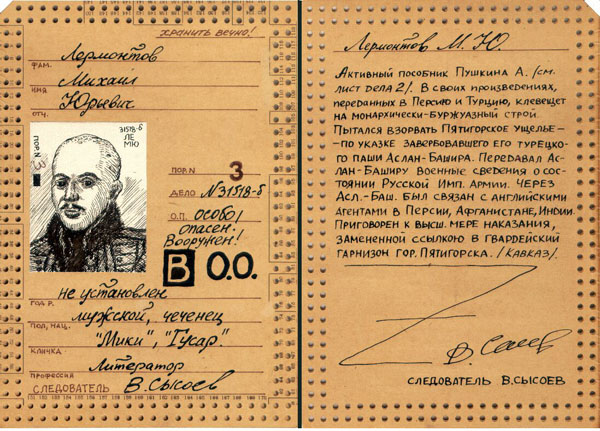 ХРАНИТЬ ВЕЧНО!
Лермонтов
ФАМ.
Михаил
ИМЯ
Юрьевич
ОТЧ.
31518-б
ЛЕ
МЮ
ПОР. N
3
ПОР. N
3
ДЕЛО N31518-б
О.П. особо
опасен!
Вооружен!
В О.О.
не установлен
ГОД Р.
мужской, чеченец
ПОЛ, НАЦ.
"Мики", "Гусар".
КЛИЧКА
Литератор
ПРОФЕССИЯ
СЛЕДОВАТЕЛЬ В.Сысоев
Лермонтов М. Ю.
Активный пособник Пушкина А. /см.
лист дела 2/. В своих произведениях,
переданных в Персию и Турцию, клевещет
на монархически-буржуазный строй.
Пытался взорвать Пятигорское ущелье —
— по указке завербовавшего его турецко-
го паши Аслан-Башира. Передавал Ас-
лан-Баширу военные сведения о со-
стоянии Русской Имп. Армии. Через
Асл.-Баш. был связан с английскими
агентами в Персии, Афганистане, Индии.
Приговорен к высш. мере наказания,
замененной ссылкою в гвардейский
гарнизон гор. Пятигорска. /Кавказ/.
СЛЕДОВАТЕЛЬ В.СЫСОЕВ